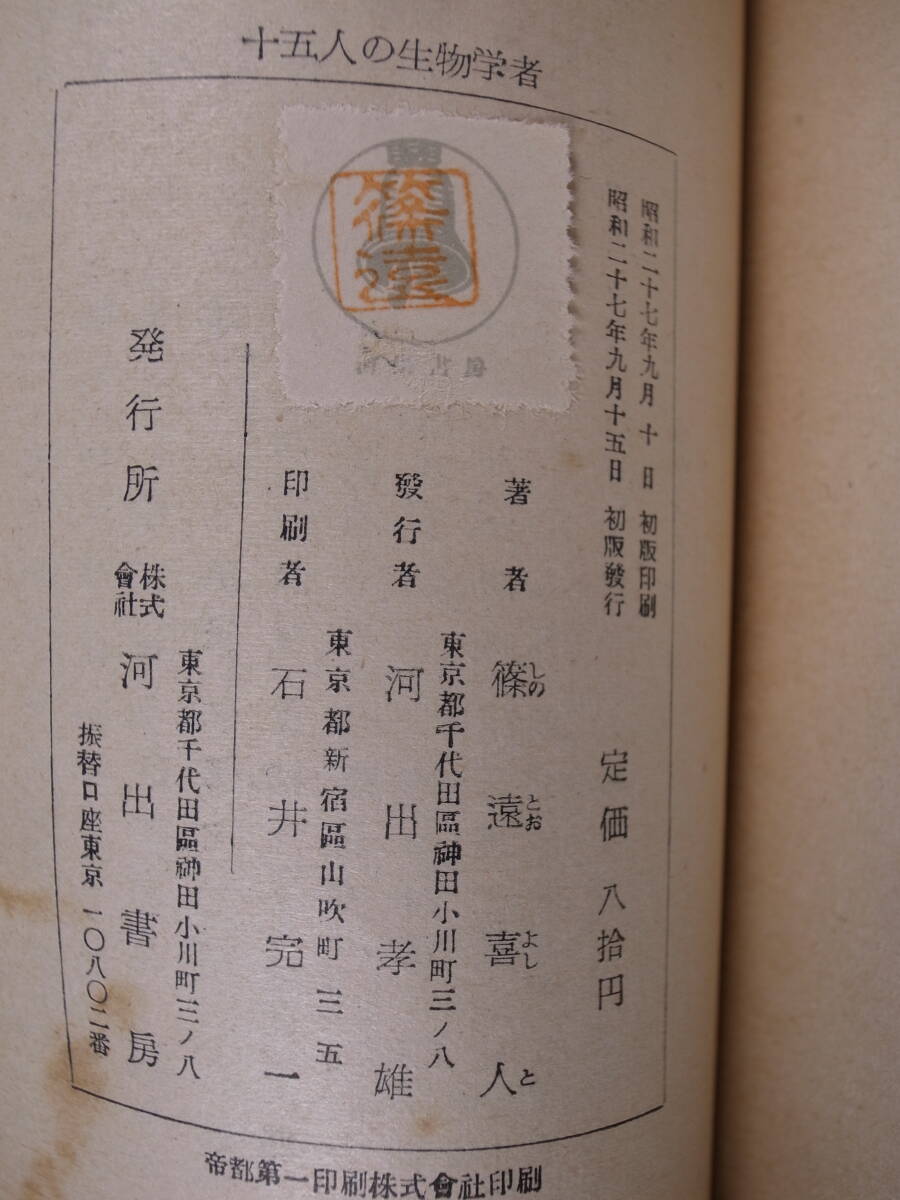 十五人の生物学者
昭和二十七年九月 十 日 初版印刷
昭和二十七年九月十五日 初版發行
定価 八拾円
著者 篠遠喜人
しの とお よし と
東京都千代田區神田小川町三ノ八
發行者 河出孝雄
東京都新宿區山吹町三五
印刷者 石井完一
東京都千代田區神田小川町三ノ八
発行所 株式會社 河出書房
振替口座東京一〇八〇二番
篠遠
帝都第一印刷株式會社印刷